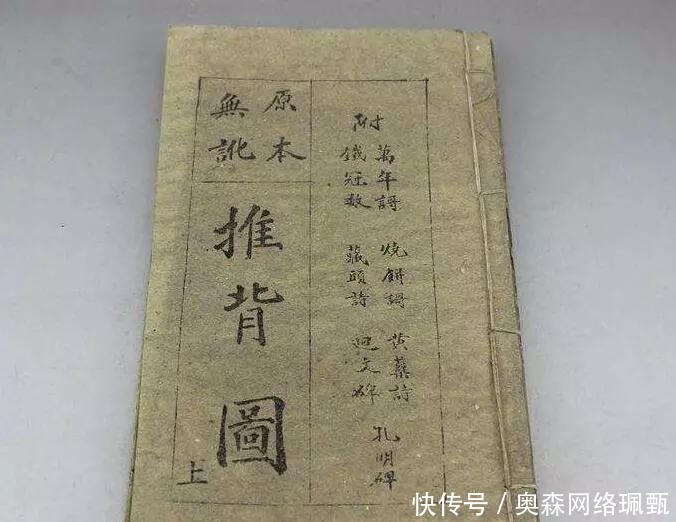 附
萬年謌 燒餅謌 黃蘗詩 孔明碑
鐵冠數 藏頭詩 迴文碑
原本
無訛
推背圖
上
快传号/奥森网络珮甄